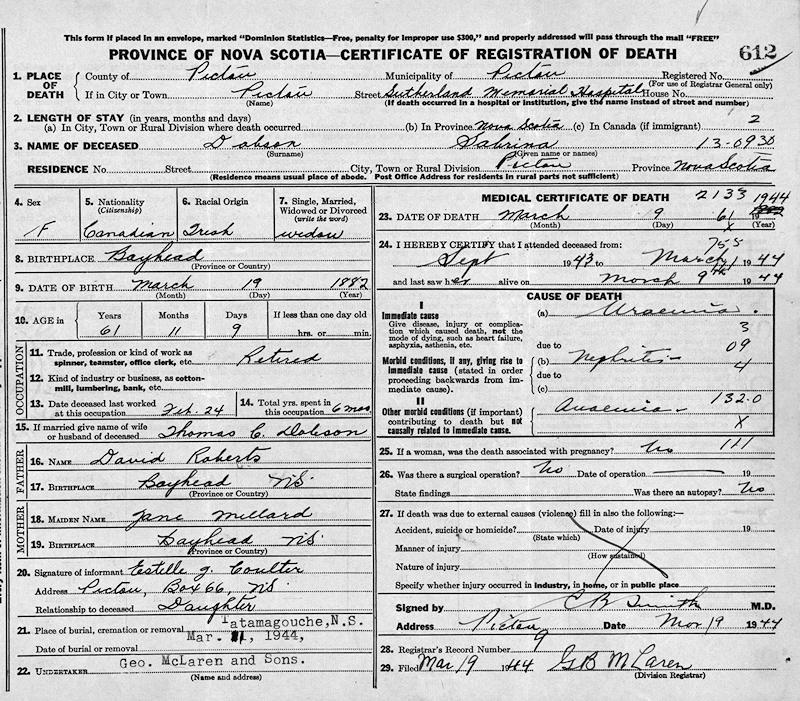 This form if placed in an envelope, marked "Dominion Statistics—Free, penalty for improper use $300," and properly addressed will pass through the mail "FREE"
PROVINCE OF NOVA SCOTIA—CERTIFICATE OF REGISTRATION OF DEATH 612
1. PLACE OF DEATH { County of Pictou Municipality of Pictou Registered No.
(For use of Registrar General only)
If in City or Town Pictou Street Sutherland Memorial Hospital House No.
(Name) (If death occurred in a hospital or institution, give the name instead of street and number)
2. LENGTH OF STAY (in years, months and days)
(a) In City, Town or Rural Division where death occurred (b) In Province Nova Scotia (c) In Canada (if immigrant) 2
3. NAME OF DECEASED Dobson Sabrina 13-0930
(Surname) (Given name or names)
RESIDENCE No. Street City, Town or Rural Division Pictou Province Nova Scotia
(Residence means usual place of abode. Post Office Address for residents in rural parts not sufficient)
4. Sex F
5. Nationality (Citizenship) Canadian
6. Racial Origin Irish
7. Single, Married, Widowed or Divorced (write the word) widow
8. BIRTHPLACE Bayhead
(Province or Country)
9. DATE OF BIRTH March 19 1882
(Month) (Day) (Year)
10. AGE in Years Months Days If less than one day old
61 11 9 hrs. or min.
OCCUPATION
11. Trade, profession or kind of work as spinner, teamster, office clerk, etc. Retired
12. Kind of industry or business, as cotton-mill, lumbering, bank, etc.
13. Date deceased last worked at this occupation Feb. 24
14. Total yrs. spent in this occupation 6 mos
15. If married give name of wife or husband of deceased Thomas C. Dobson
FATHER
16. NAME David Roberts
17. BIRTHPLACE Bayhead NS
(Province or Country)
MOTHER
18. MAIDEN NAME Jane Millard
19. BIRTHPLACE Bayhead NS
(Province or Country)
20. Signature of informant Estelle J. Coulter
Address Pictou, Box 66, NS
Relationship to deceased Daughter
21. Place of burial, cremation or removal Tatamagouche, N.S.
Date of burial or removal Mar. 11, 1944,
22. UNDERTAKER Geo. McLaren and Sons.
(Name and address)
MEDICAL CERTIFICATE OF DEATH 2133 1944
23. DATE OF DEATH March 9 61
(Month) (Day) X (Year)
24. I HEREBY CERTIFY that I attended deceased from: 758
Sept 1943 to March 1944
and last saw her alive on March 9th 1944
CAUSE OF DEATH
I
Immediate cause
Give disease, injury or complication which caused death, not the mode of dying, such as heart failure, asphyxia, asthenia, etc.
(a) Uraemia.
3
due to 09
Morbid conditions, if any, giving rise to immediate cause (stated in order proceeding backwards from immediate cause).
(b) Nephritis
4
due to
(c)
132.0
II
Other morbid conditions (if important) contributing to death but not causally related to immediate cause.
Anaemia
X
25. If a woman, was the death associated with pregnancy? No 111
26. Was there a surgical operation? No Date of operation 19
State findings Was there an autopsy? No
27. If death was due to external causes (violence) fill in also the following:—
Accident, suicide or homicide? Date of injury 19
(State which)
Manner of injury
(How sustained)
Nature of injury
Specify whether injury occurred in industry, in home, or in public place
Signed by C B Smith M.D.
Address Pictou Date Mar 9 1944
28. Registrar's Record Number 9
29. Filed Mar 9 1944 G B McLaren
(Division Registrar)